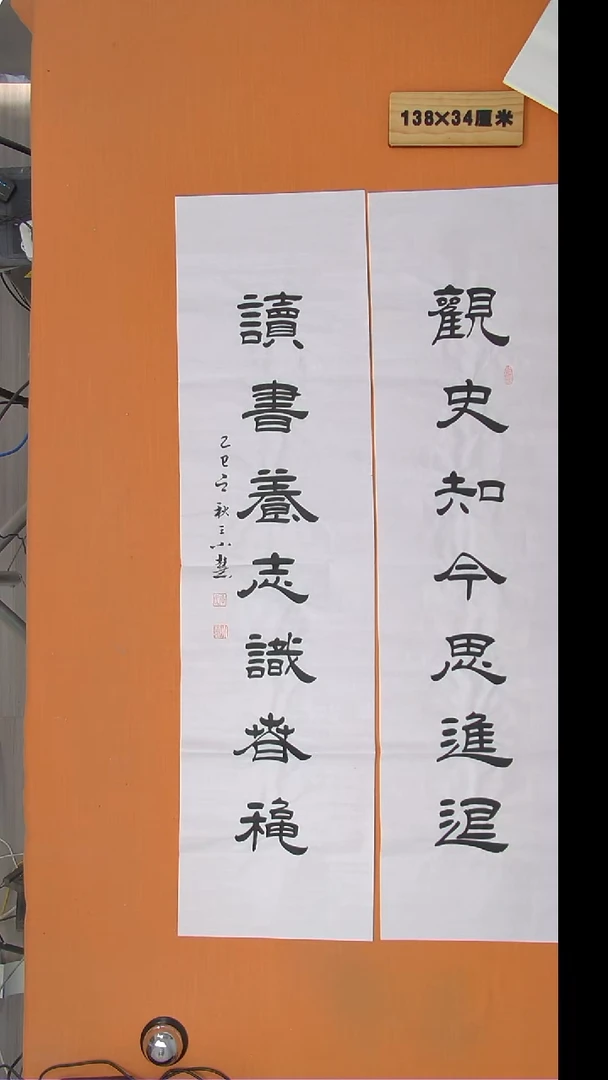 138×34厘米
觀史知今思進退
讀書養志識萅穐
乙巳立秋王小慧